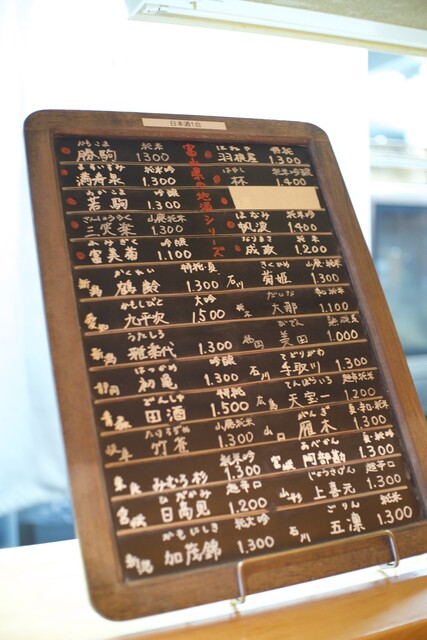 日本酒1合
富山県の地酒シリーズ
かちこま
勝駒 純米 1.300
はねや
羽根屋 特純 1.300
満寿泉 純米吟 1.300
はやし
林 純米吟醸 1.400
わかこま
若駒 吟醸 1.300
さんしょうらく
三笑楽 山廃純米 1.300
はなみ
帆波 純米吟 1.400
ふみぎく
富美菊 吟醸 1.100
なりまさ
成政 純米 1.200
新潟 かくれい
鶴齢 特純 1.300
石川 きくひめ
菊姫 山廃純米 1.300
愛知 かもしびと
九平次 大吟 1.500
栃木 だいな
大那 1.100
新潟 うたしろ
雅楽代 1.300
福岡 びでん
美田 1.000
静岡 はつかめ
初亀 吟醸 1.300
石川 てどりがわ
手取川 1.300
青森 でんしゅ
田酒 特純 1.500
広島 てんぽういち
天宝一 超辛純米 1.200
岐阜 たけすずめ
竹雀 山廃純米 1.300
山口 がんぎ
雁木 1.300
奈良 みむろ杉 純米吟 1.300
宮城 あべかん
阿部勘 純吟 1.300
宮城 ひたかみ
日高見 超辛口 1.200
山形 じょうきげん
上喜元 超辛口 1.300
新潟 かもにしき
加茂錦 純大吟 1.300
石川 ごりん
五凛 純米 1.300